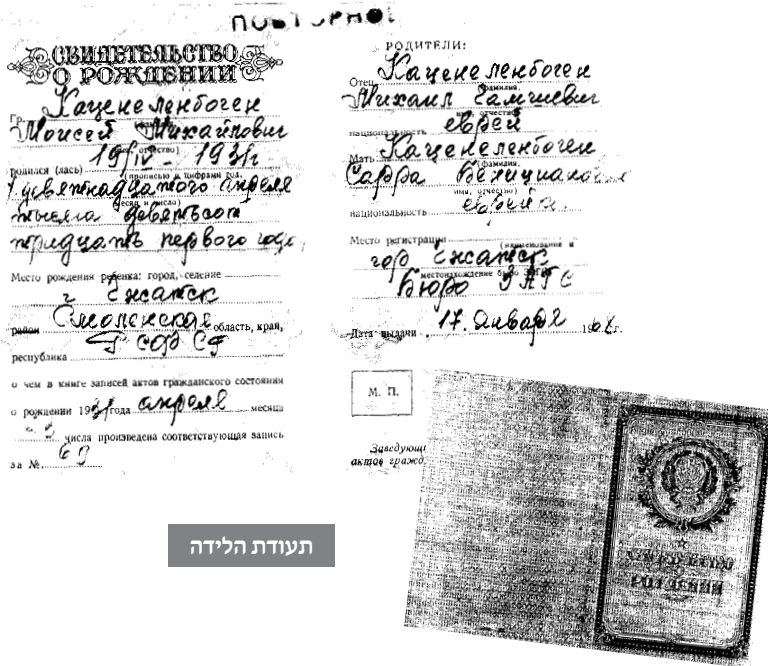 ПОВТОРНОЕ
СВИДЕТЕЛЬСТВО
О РОЖДЕНИИ
Гр. Каценеленбоген
Моисей Михайлович
родился (лась) 19/IV - 1931г
(прописью и цифрами год,
девятнадцатого апреля
месяц и число)
тысяча девятьсот
тридцать первого года
Место рождения ребенка: город, селение
г Гжатск
район Смоленская область, край,
республика РСФСР
о чем в книге записей актов гражданского состояния
о рождении 1931 года апреля месяца
числа произведена соответствующая запись
за № 69
РОДИТЕЛИ:
Отец Каценеленбоген
(фамилия,
Михаил
имя, отчество)
национальность еврей
Мать Каценеленбоген
(фамилия,
Сарра
имя, отчество)
национальность еврейка
Место регистрации
(наименование и
гор Гжатск
местонахождение бюро ЗАГС)
Бюро ЗАГС
Дата выдачи 17. Января 1968г.
М. П.
Заведующ
актов гражд
СВИДЕТЕЛЬСТВО
О РОЖДЕНИИ
תעודת הלידה